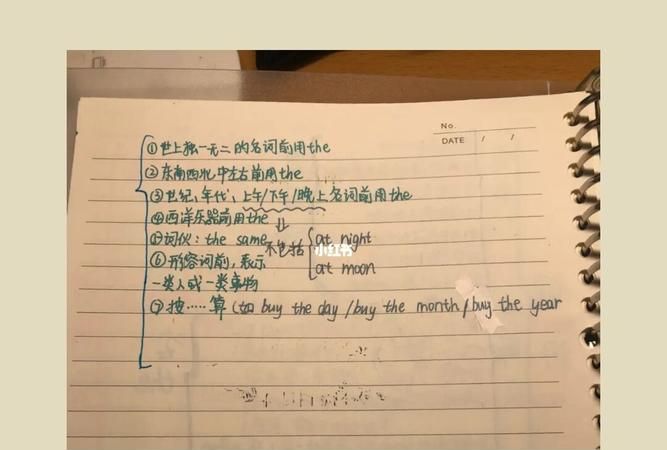 No.
DATE / /
①世上独一无二的名词前用the
②东南西北中左右前用the
③世纪、年代、上午/下午/晚上名词前用the
④西洋乐器前用the
⑤词伙：the same
不包括 { at night
at moon
小红书
⑥形容词前，表示
一类人或一类事物
⑦按……算（如 buy the day /buy the month /buy the year